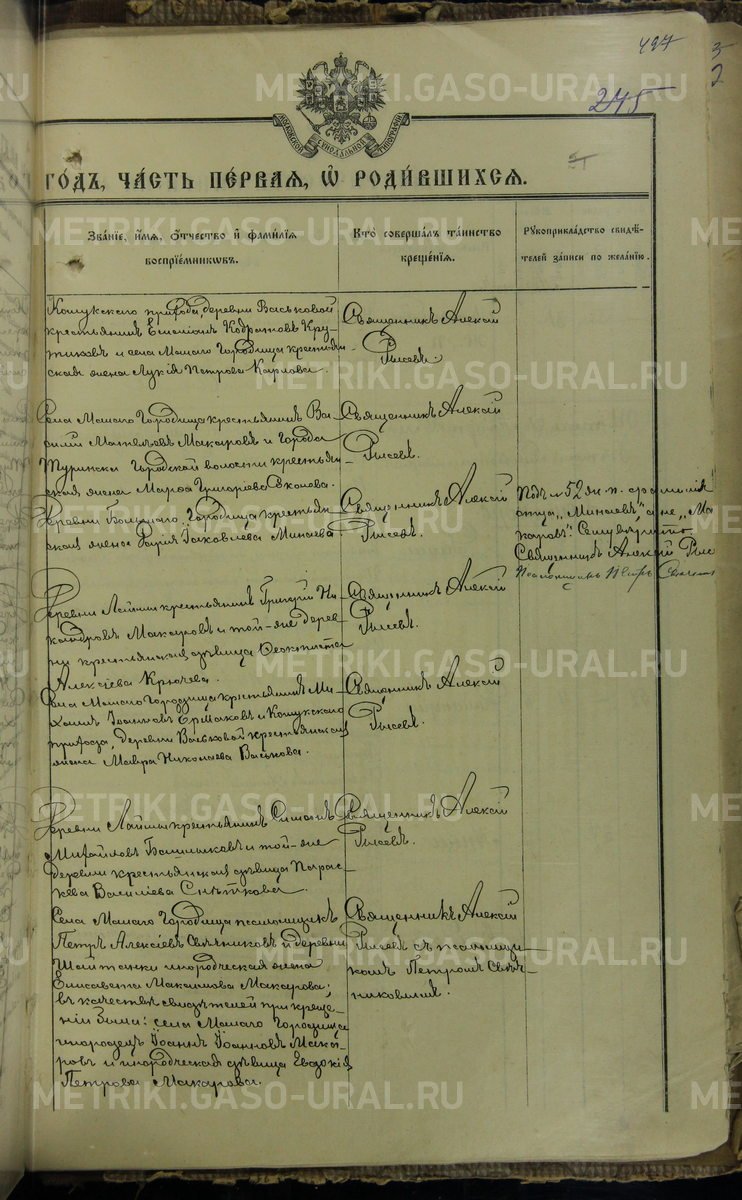 497
245
МОСКОВСКОЙ СѴНОДАЛЬНОЙ ТИПОГРАФІИ
ГО́ДЪ, ЧА́СТЬ ПЕ́РВАЯ, Ѡ҆ РОДИ́ВШИХСЯ.
Зва́нїе, и҆́мѧ, ѻ҆́тчество и҆ фами́лїѧ
воспрїе́мникѡвъ.
Кто̀ соверша́лъ та́инство
креще́нїѧ.
Рꙋкоприкла́дство свидѣ́-
телей за́писи по жела́нїю.
Кошукскаго прихода, деревни Васьковой
крестьянинъ Кодратовъ Кру-
тиковъ и села Малаго Городища крестьян-
ская жена Лукія Петрова Карлова.
Священникъ Алексій
Рысевъ.
Села Малаго Городища крестьянинъ Ва-
силій Матвѣевъ Макаровъ и Города
Туринска Городской волости крестьян-
ская жена Марѳа Григорьева
Священникъ Алексій
Рысевъ.
Деревни Большаго Городища крестьян-
ская жена Іаковлева Минаева.
Священникъ Алексій
Рысевъ.
Подъ № 52 ж. п. фамилія
отца „Минаевъ", а не „Ма-
каровъ".
Священникъ Алексій Рыс
Псаломщикъ Петръ
Деревни Лаймы крестьянинъ Григорій Ни-
кандровъ Макаровъ и той-же дерев-
ни крестьянская дѣвица Ѳеоктиста
Алексіева Крючева.
Священникъ Алексій
Рысевъ.
Села Малаго Городища крестьянинъ Ми-
хаилъ Іоанновъ Ермаковъ и Кошукскаго
прихода, деревни Васьковой крестьянская
жена Мавра Николаева Васькова.
Священникъ Алексій
Рысевъ.
Деревни Лаймы крестьянинъ Симеонъ
Михайловъ Башмаковъ и той-же
деревни крестьянская дѣвица Парас-
кева Василіева Снѣткова.
Священникъ Алексій
Рысевъ.
Села Малаго Городища псаломщикъ
Петръ Алексіевъ Свѣчниковъ и деревни
Шайтанки инородческая жена
Елисавета Максимова Макарова;
въ качествѣ свидѣтелей при креще-
ніи были: села Малаго Городища
инородецъ Іоаннъ Іоанновъ Мака-
ровъ и инородческая дѣвица Евдокія
Петрова Макарова.
Священникъ Алексій
Рысевъ съ псаломщи-
комъ Петромъ Свѣч-
никовымъ.
METRIKI.GASO-URAL.RU